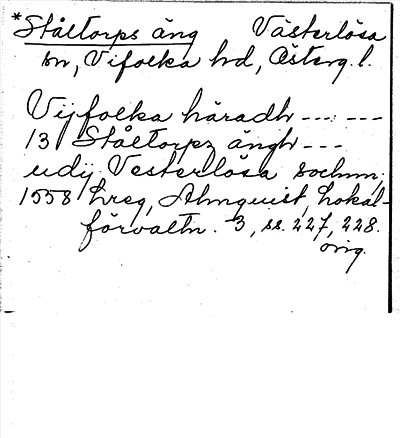 *Ståltorps äng Västerlösa
sn, Vifolka hd, Österg. l.
Vijfolka häradh --- ---
13 Ståltorpz ängh ---
udij Vesterlösa sochnn,
1558 hreg, Almquist, Lokal-
förvaltn. 3, ss. 227, 228.
orig.